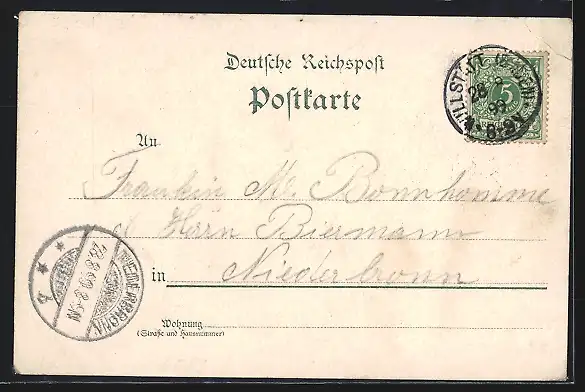 Deutsche Reichspost
Postkarte
WILLSTÄTT (BADEN)
28 8
99
5
An
Fräulein M. Bonnhomme
Herrn Biermann
in Niederbronn
NIEDERBRONN
28.8.99. 8-9N
Wohnung
(Straße und Hausnummer)